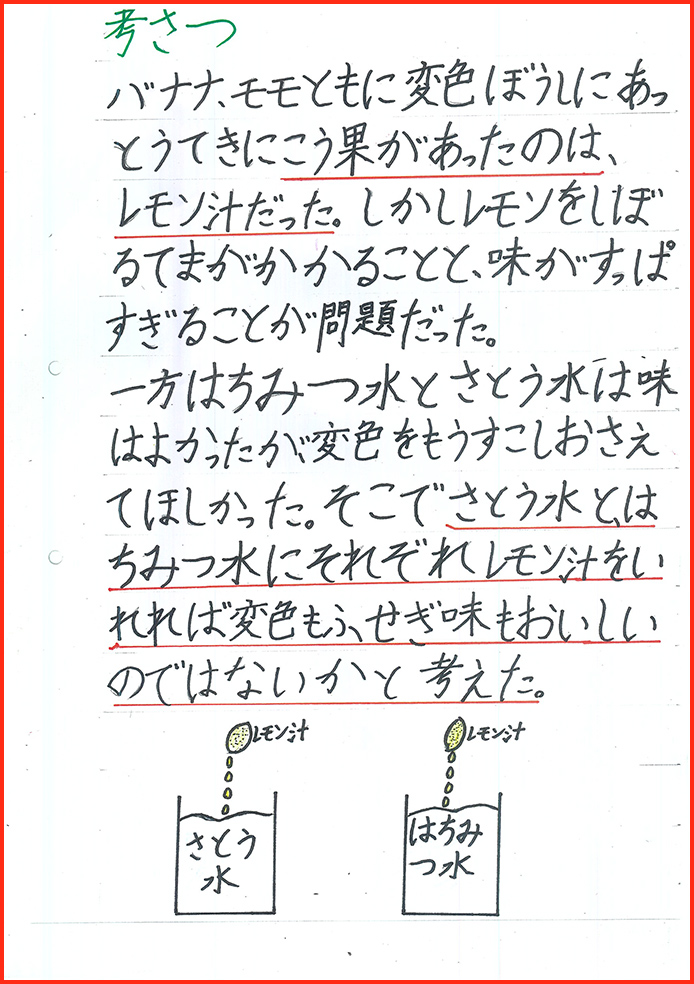 考さつ
バナナ、モモともに変色ぼうしにあっ
とうてきにこう果があったのは、
レモン汁だった。しかしレモンをしぼ
るてまがかかることと、味がすっぱ
すぎることが問題だった。
一方はちみつ水とさとう水は味
はよかったが、変色をもうすこしおさえ
てほしかった。そこでさとう水と、は
ちみつ水にそれぞれレモン汁をい
れれば変色もふせぎ味もおいしい
のではないかと考えた。
レモン汁
レモン汁
さとう
水
はちみ
つ水